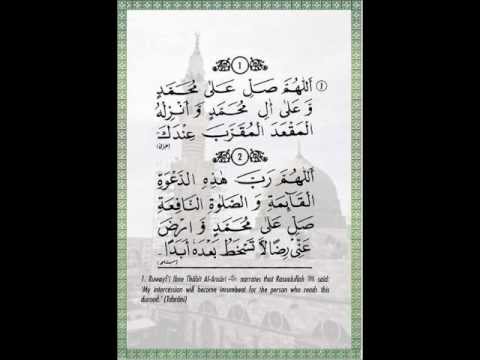 1
① اَللّٰهُمَّ صَلِّ عَلٰى مُحَمَّدٍ
وَّ عَلٰى اٰلِ مُحَمَّدٍ وَّ اَنْزِلْهُ
الْمَقْعَدَ الْمُقَرَّبَ عِنْدَكَ
2
اَللّٰهُمَّ رَبَّ هٰذِهِ الدَّعْوَةِ
الْقَآئِمَةِ وَ الصَّلٰوةِ النَّافِعَةِ
صَلِّ عَلٰى مُحَمَّدٍ وَّ ارْضَ
عَنِّىْ رِضًا لَّا تَسْخَطُ بَعْدَهٗ اَبَدًا.
1. Ruwayfi' Ibne Thâbit Al-Ansâri narrates that Rasoolullah ﷺ said:
'My intercession will become incumbent for the person who reads this
durood.' (Tabrâni)